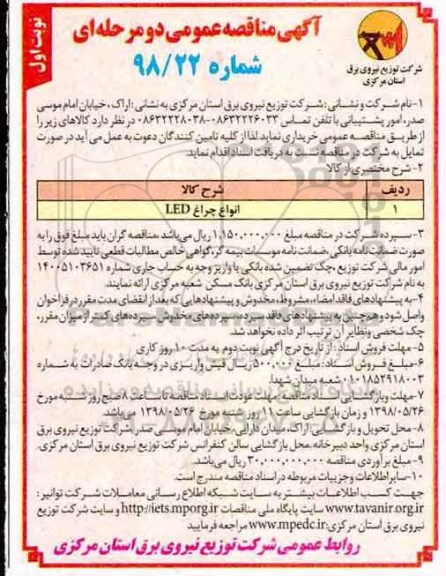 نوبت اول
آگهی مناقصه عمومی دو مرحله‌ای
شماره ۹۸/۲۲
شرکت توزیع نیروی برق
استان مرکزی
۱-نام شرکت و نشانی: شرکت توزیع نیروی برق استان مرکزی به نشانی: اراک، خیابان امام موسی
صدر، امور پشتیبانی با تلفن تماس ۰۸۶۳۲۲۲۶۰۳۳-۰۸۶۳۲۲۲۸۰۳۸ در نظر دارد کالاهای زیر را
از طریق مناقصه عمومی خریداری نماید لذا از کلیه تامین کنندگان دعوت به عمل می آید در صورت
تمایل به شرکت در مناقصه نسبت به دریافت اسناد اقدام نماید.
۲-شرح مختصری از کالا
ردیف شرح کالا
۱ انواع چراغ LED
۳- سپرده شرکت در مناقصه مبلغ ۱,۱۵۰,۰۰۰,۰۰۰ ریال می باشد، مناقصه گران باید مبلغ فوق را به
صورت ضمانت نامه بانکی، ضمانت نامه موسسات بیمه گر، گواهی خالص مطالبات قطعی تایید شده توسط
امور مالی شرکت توزیع، چک تضمین شده بانکی یا واریز وجه به حساب جاری شماره ۱۴۰۰۵۱۰۳۶۵۱
به نام شرکت توزیع نیروی برق استان مرکزی بانک مسکن شعبه مرکزی ارائه نمایند.
۴-به پیشنهادهای فاقد امضاء، مشروط، مخدوش و پیشنهادهایی که بعد از انقضای مدت مقرر در فراخوان
واصل شود و همچنین به پیشنهادهای فاقد سپرده، سپرده‌های مخدوش، سپرده‌های کمتر از میزان مقرر،
چک شخصی و نظایر آن ترتیب اثر داده نخواهد شد.
۵- مهلت فروش اسناد: از تاریخ درج آگهی نوبت دوم به مدت ۱۰ روز کاری
۶-مبلغ فروش اسناد: مبلغ ۵۰۰,۰۰۰ ریال فیش واریزی در وجه بانک صادرات به شماره
۰۱۰۱۸۵۲۹۱۸۰۰۳ شعبه میدان شهدا
۷-مهلت و بازگشایی اسناد مناقصه: مهلت عودت اسناد مناقصه تا ساعت ۸ صبح روز شنبه مورخ
۱۳۹۸/۰۵/۲۶ و زمان بازگشایی ساعت ۱۱ روز شنبه مورخ ۱۳۹۸/۰۵/۲۶ می باشد.
۸- محل تحویل و بازگشایی: اراک، میدان دارایی، خیابان امام موسی صدر، شرکت توزیع نیروی برق
استان مرکزی واحد دبیرخانه، محل بازگشایی سالن کنفرانس شرکت توزیع نیروی برق استان مرکزی.
۹-مبلغ برآوردی مناقصه ۳۰,۰۰۰,۰۰۰,۰۰۰ ریال می باشد.
۱۰-سایر اطلاعات و جزییات مربوطه در اسناد مناقصه مندرج است.
جهت کسب اطلاعات بیشتر به سایت شبکه اطلاع رسانی معاملات شرکت توانیر:
www.tavanir.org.ir سایت پایگاه ملی مناقصات http://iets.mporg.ir و سایت شرکت توزیع
نیروی برق استان مرکزی: www.mpedc.ir مراجعه فرمایید
روابط عمومی شرکت توزیع نیروی برق استان مرکزی